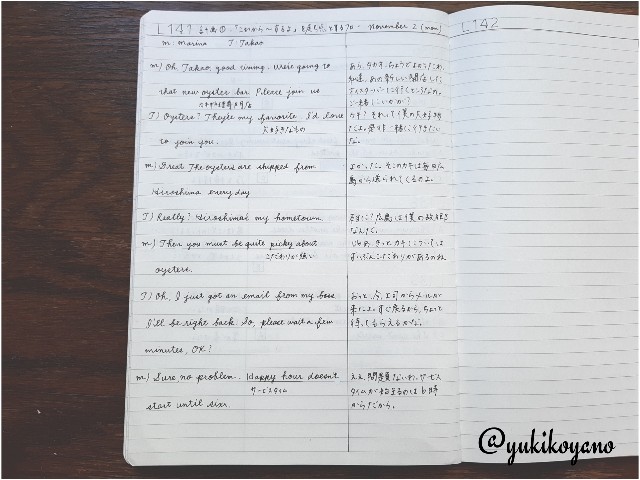 L141 計画① 「これから～するよ」 November 2 (mon)
L142
M: Marina T: Takao
M) Oh, Takao, good timing. We're going to
that new oyster bar. Please join us
T) Oysters? They're my favorite. I'd love
大好きなもの
to join you.
M) Great. The oysters are shipped from
Hiroshima every day.
T) Really? Hiroshima's my hometown.
M) Then you must be quite picky about
こだわりが強い
oysters.
T) Oh, I just got an email from my boss.
I'll be right back. So, please wait a few
minutes, OK?
M) Sure, no problem. Happy hour doesn't
サービスタイム
start until six.
あら、タカオ、ちょうどよかったわ。
私達、あの新しい開店した
オイスターバーに行くところなの。
ご一緒しいかが?
カキ? それって僕の大好物
だよ。是非一緒に行きたい
な。
よかった。そこのカキは毎日広
島から送られてくるのよ。
ほんと? 広島は僕の故郷
なんだ。
じゃあ、きっとカキについては
ずいぶんこだわりがあるのね
おっと、今、上司からメールが
来たよ。すぐ戻るから、ちょっと
待ってもらえるかな。
ええ、問題ないわ。サービス
タイムが始まるのは6時
からだから。
@yukikoyano